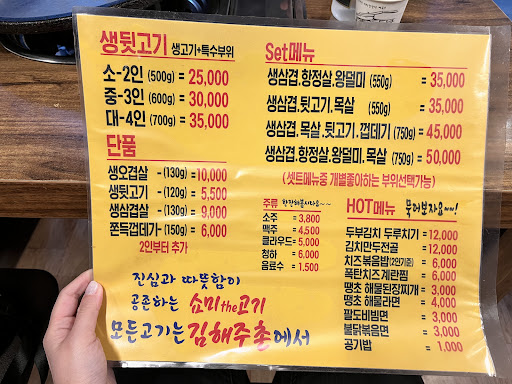 생뒷고기 생고기+특수부위
소-2인 (500g) = 25,000
중-3인 (600g) = 30,000
대-4인 (700g) = 35,000
단품
생오겹살 - (130g) = 10,000
생뒷고기 - (120g) = 5,500
생삼겹살 - (130g) = 9,000
쫀득껍데기 - (150g) = 6,000
2인부터 추가
진심과 따뜻함이
공존하는 쇼미the고기
모든고기는 김해주촌에서
Set메뉴
생삼겹.항정살.왕덜미 (550g) = 35,000
생삼겹.뒷고기.목살 (550g) = 35,000
생삼겹.목살.뒷고기.껍데기 (750g) = 45,000
생삼겹.항정살.왕덜미.목살 (750g) = 50,000
(셋트메뉴중 개별좋아하는 부위선택가능)
주류 한잔하볼시다요~~
소주 = 3,800
맥주 = 4,500
클라우드 = 5,000
청하 = 6,000
음료수 = 1,500
HOT메뉴 묵어보자요
두부김치 두루치기 = 12,000
김치만두전골 = 12,000
치즈볶음밥(2인기준) = 6,000
폭탄치즈계란찜 = 6,000
땡초 해물된장찌개 = 3,000
땡초 해물라면 = 4,000
팔도비빔면 = 3,000
불닭볶음면 = 3,000
공기밥 = 1,000